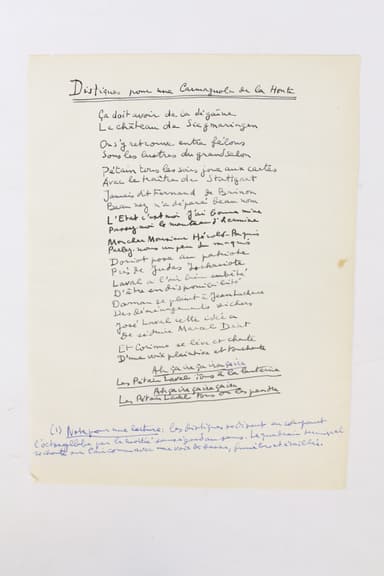 Distiques pour une Carmagnole de la Honte
Ça doit avoir de la dégaîne
Le château de Siegmaringen
On s'y retrouve entre félons
Sous les lustres du grand salon
Pétain tous les soirs joue aux cartes
Avec le traître de Stuttgart
Jamais dit Fernand de Brinon
Beau nez n'a déparé beau nom
L'Etat c'est moi j'ai bonne mine
Passez-moi le manteau d'hermine
Mon cher Monsieur Hérold-Paquis
Parlez-nous un peu du maquis
Doriot pose au patriote
Près de Judas Ischariote
Laval a l'air bien embêté
D'être en disponibilité
Darnan se plaint à Jean Luchaire
Des déménagements si chers
José Laval cette idée a
De séduire Marcel Déat
Et Corinne se lève et chante
D'une voix plaintive et touchante
Ah ça ira ça ira ça ira
Les Pétain Laval tous à la lanterne
Ah ça ira ça ira ça ira
Les Pétain Laval tous on les pendra
(1) Note pour une lecture: les distiques se disent en coupant
l'octosyllabe par la moitié sans égard au sens. Le quatrain terminal
se chante sur l'air connu avec une voix de